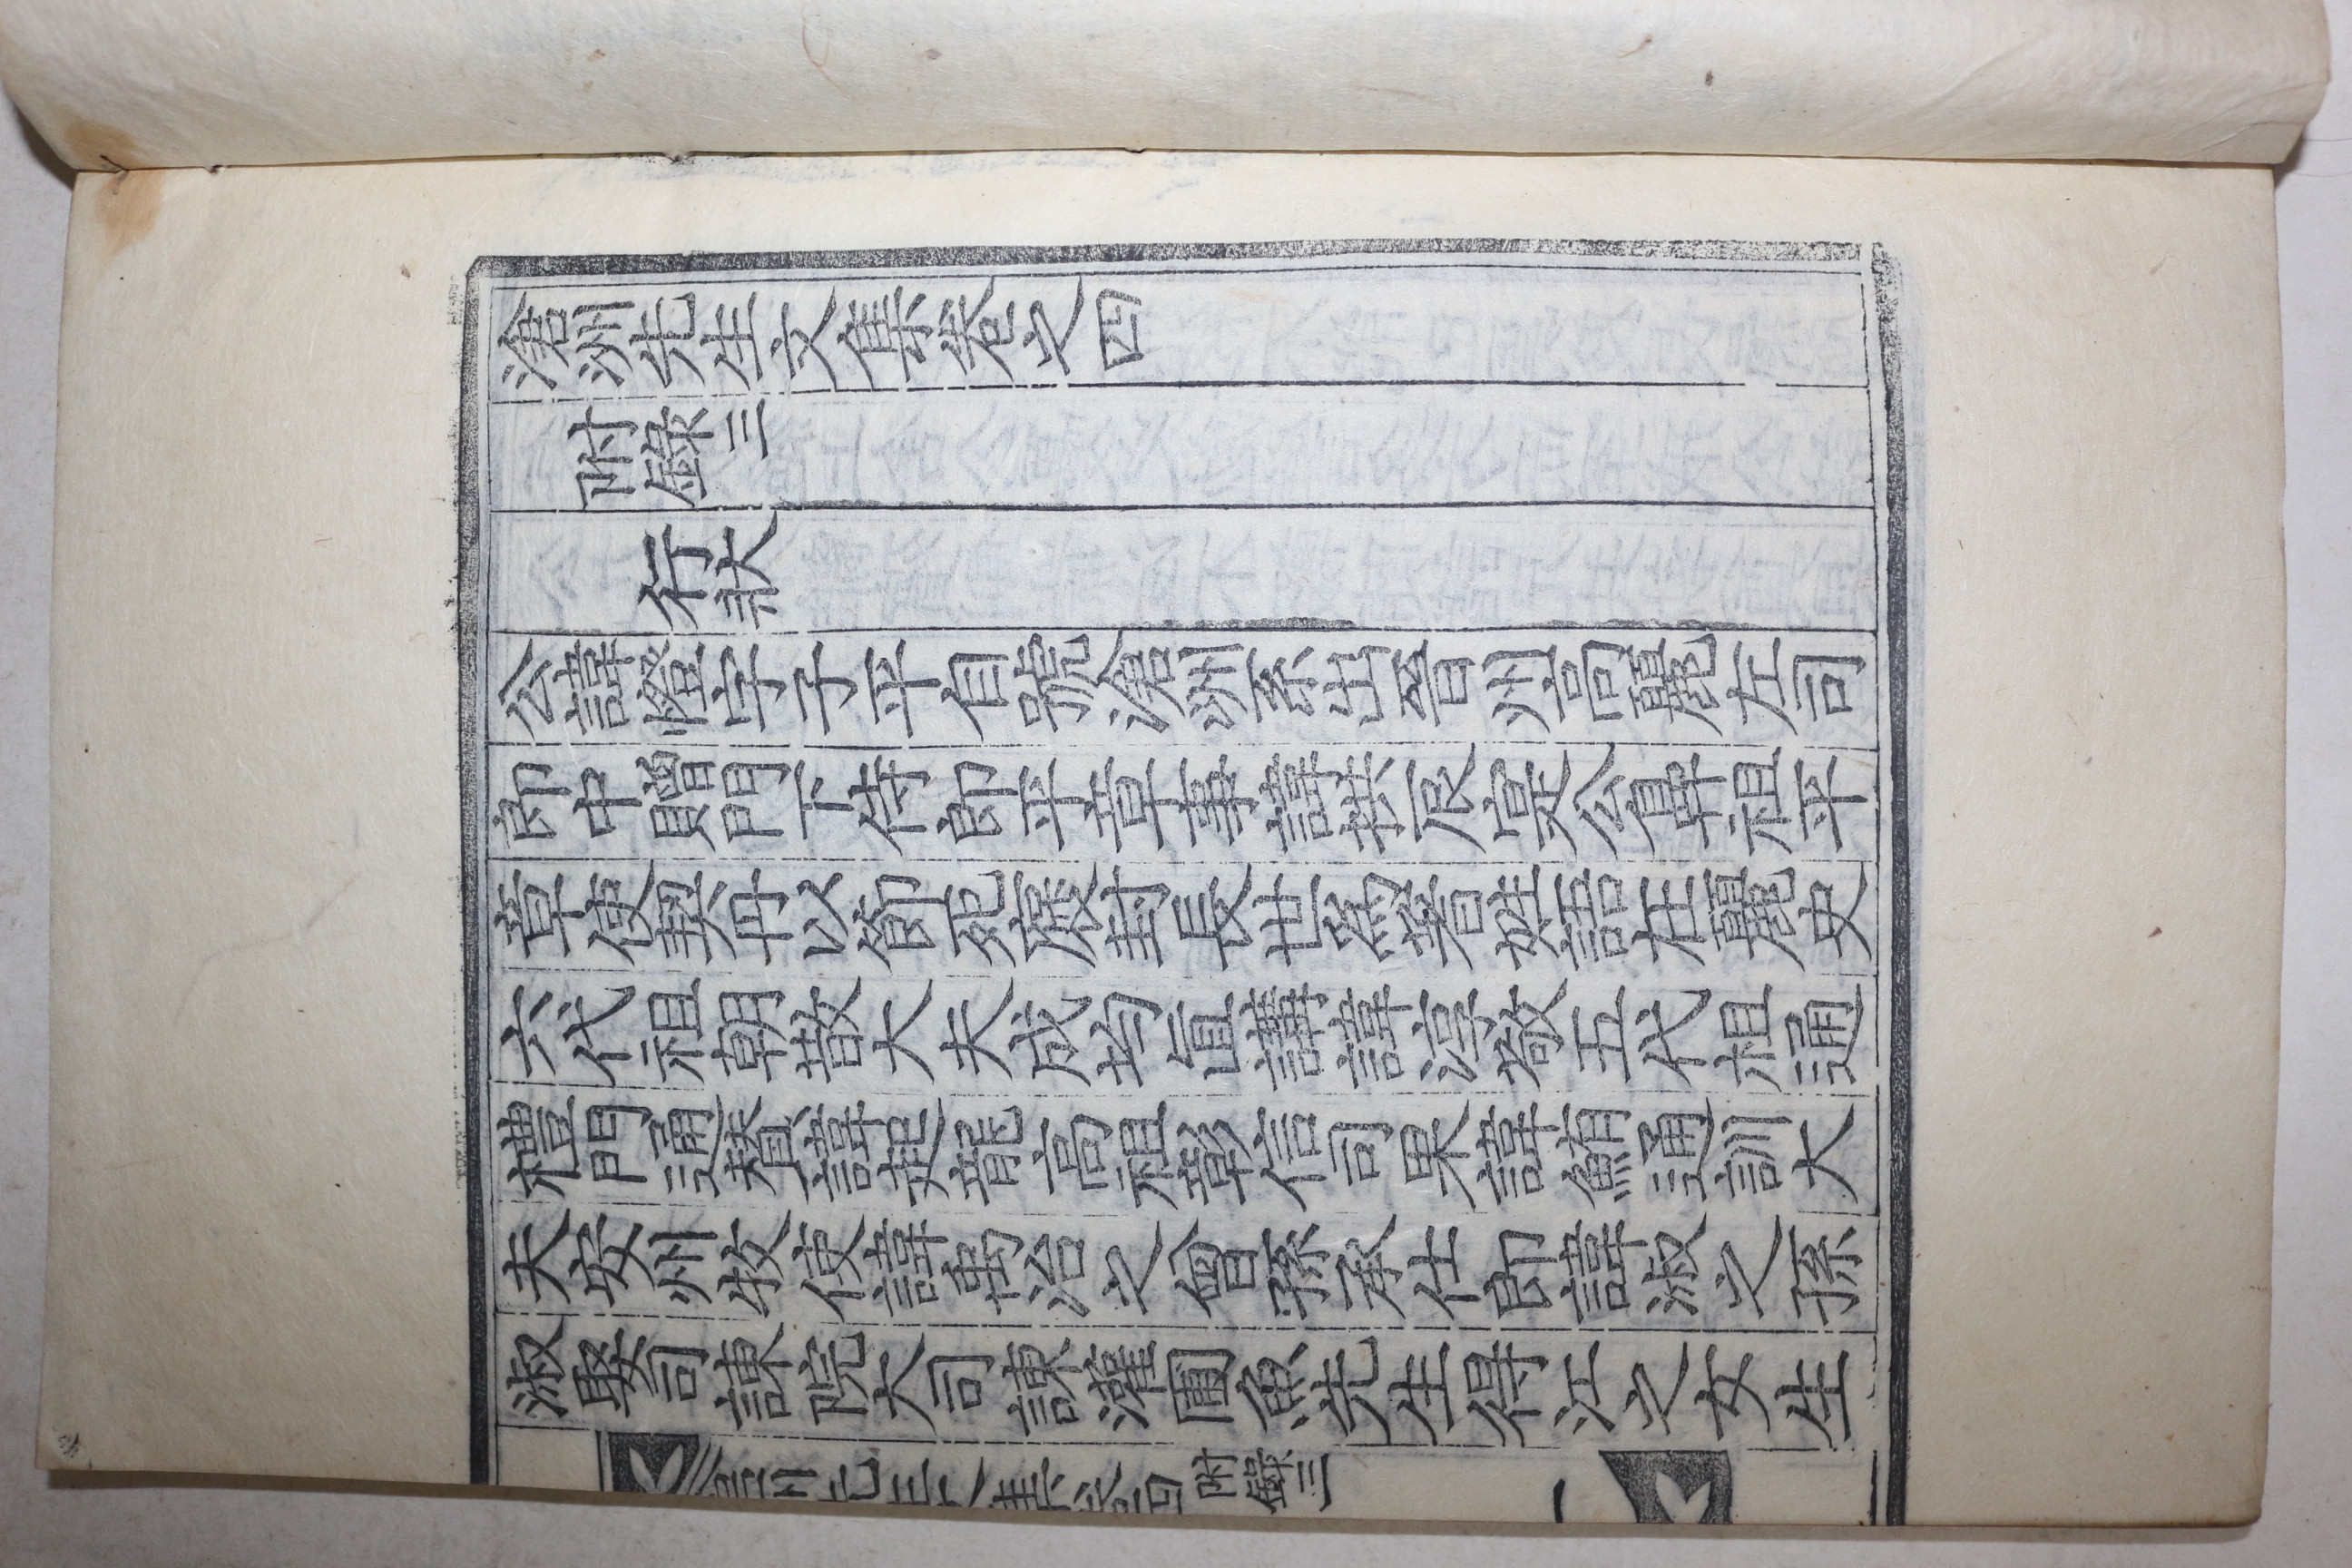 滄洲先生文集卷之四
附錄三
行狀
公諱憕字子平自號滄洲系出晉州高麗左司
郎中贈門下侍郎平章事諱拱辰寔公鼻祖平
章使契丹以節死褒封長世爲著姓語在麗史
六代祖朝散大夫成均直講諱淳敬五代祖通
禮門通贊諱起龍高祖彰信司果諱鮪通訓大
夫安州牧使諱禹治之曾孫承仕郎諱淑之孫
淑娶司諫院大司諫灌圃魚先生得江之女生
滄洲先生文集卷四 附錄三 一